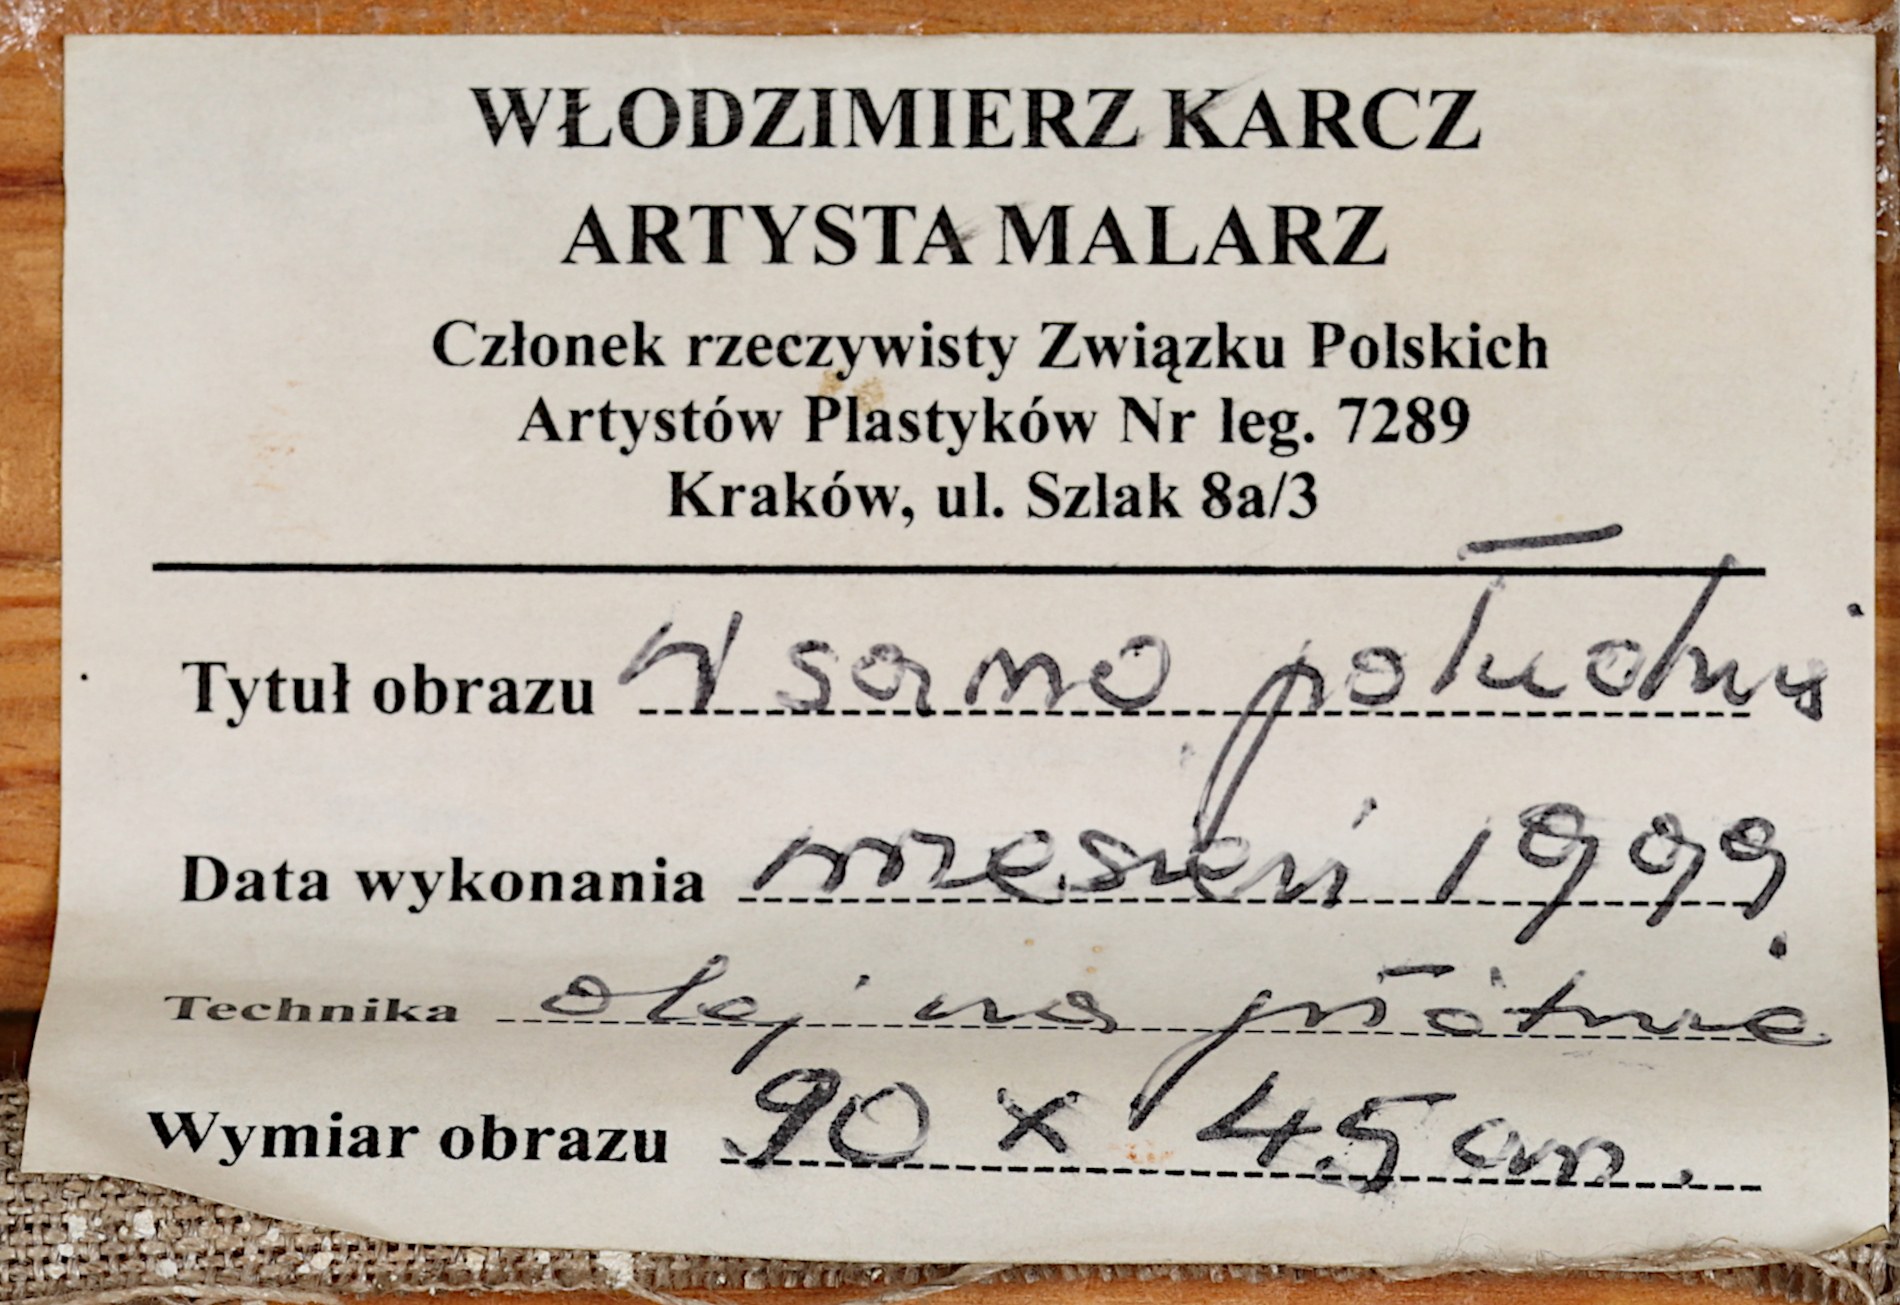 WŁODZIMIERZ KARCZ
ARTYSTA MALARZ
Członek rzeczywisty Związku Polskich
Artystów Plastyków Nr leg. 7289
Kraków, ul. Szlak 8a/3
Tytuł obrazu W samo południe
Data wykonania wrzesień 1999
Technika olej na płótnie
Wymiar obrazu 90 x 45 cm.